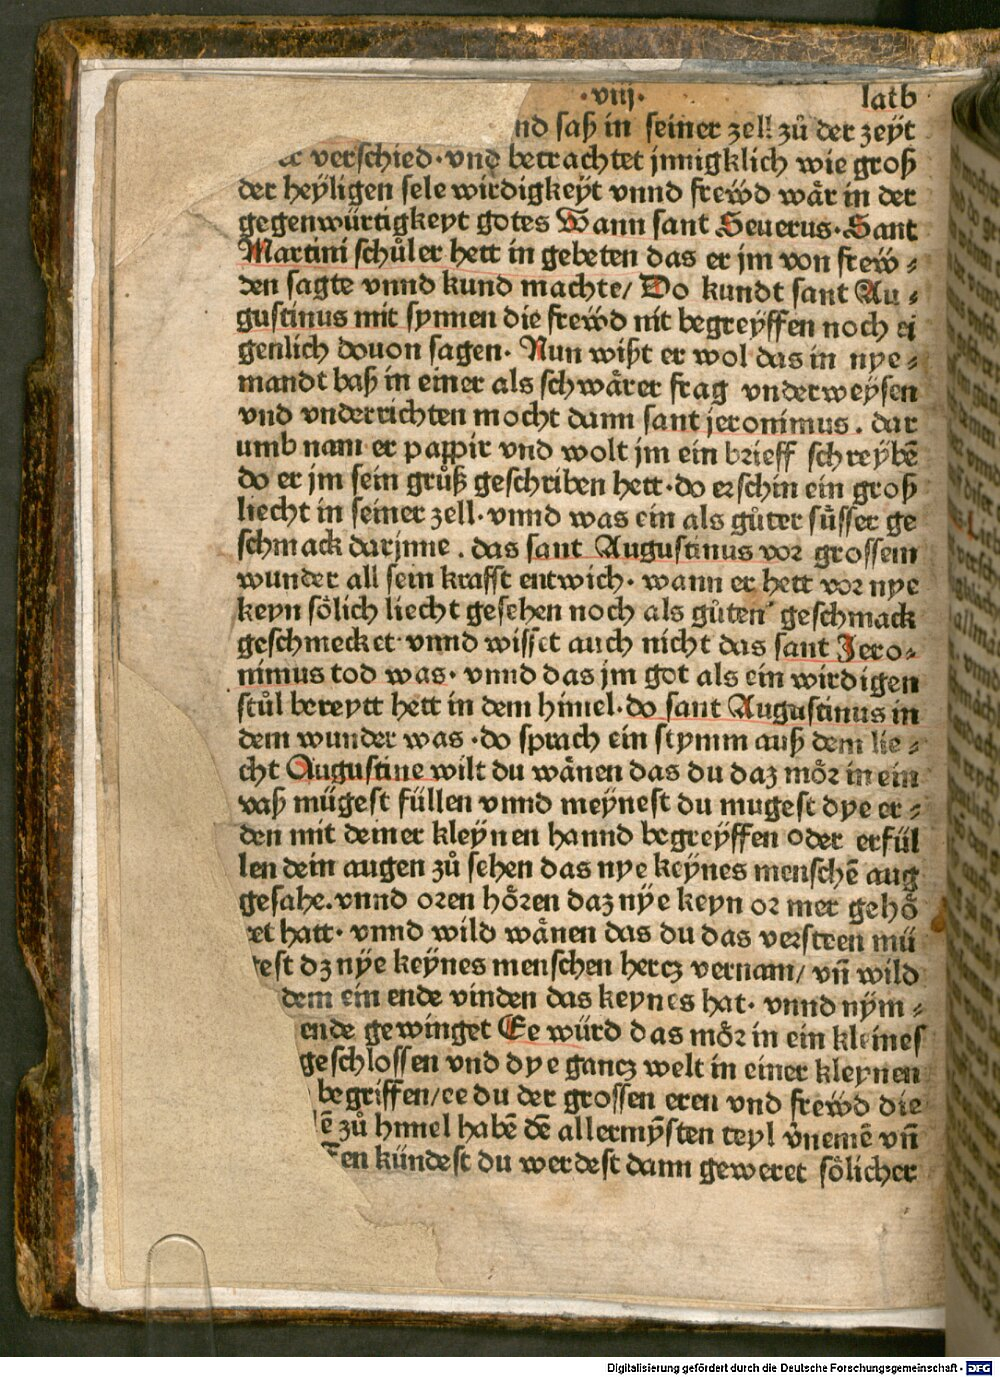 ·viij· latb
nd saß in seiner zell zů der zeyt
er verschied· vnd betrachtet jnnigklich wie groß
der heyligen sele wirdigkeyt vnnd frewd wår in der
gegenwürtigkeyt gotes Wann sant Seuerus· Sant
Martini schůler hett in gebeten das er jm von frew⸗
den sagte vnnd kund machte/ Do kundt sant Au⸗
gustinus mit synnen die frewd nit begreyffen noch ei
genlich douon sagen· Nun wißt er wol das in nye⸗
mandt baß in einer als schwårer frag vnderweysen
vnd vnderrichten mocht dann sant jeronimus. dar
umb nam er pappir vnd wolt jm ein brieff schreybē
do er jm sein grůß geschriben hett· do erschin ein groß
liecht in seiner zell· vnnd was ein als gůter sůsser ge
schmack darjnne. das sant Augustinus vor grossem
wunder all sein krafft entwich· wann er hett vor nye
keyn sölich liecht gesehen noch als gůten geschmack
geschmecket· vnnd wisset auch nicht das sant Jero⸗
nimus tod was· vnnd das jm got als ein wirdigen
stůl bereytt hett in dem himel· do sant Augustinus in
dem wunder was· do sprach ein stymm auß dem lie⸗
cht Augustine wilt du wånen das du daz mör in ein
vaß mügest füllen vnnd meynest du mugest dye er⸗
den mit deiner kleynen hannd begreyffen oder erfül
len dein augen zů sehen das nye keynes menschē aug
gesahe. vnnd oren hören daz nye keyn or mer gehö
ret hatt· vnnd wild wånen das du das versteen mü
gest dz nye keynes menschen hercz vernam/ vn̄ wild
dem ein ende vinden das keynes hat· vnnd nym⸗
ende gewinget Ee würd das mör in ein kleines
geschlossen vnd dye gancz welt in einer kleynen
begriffen/ ee du der grossen eren vnd frewd die
ē zů himel habē dē allermynsten teyl v̄nemē vn̄
en kündest du werdest dann geweret sölicher
Digitalisierung gefördert durch die Deutsche Forschungsgemeinschaft - DFG